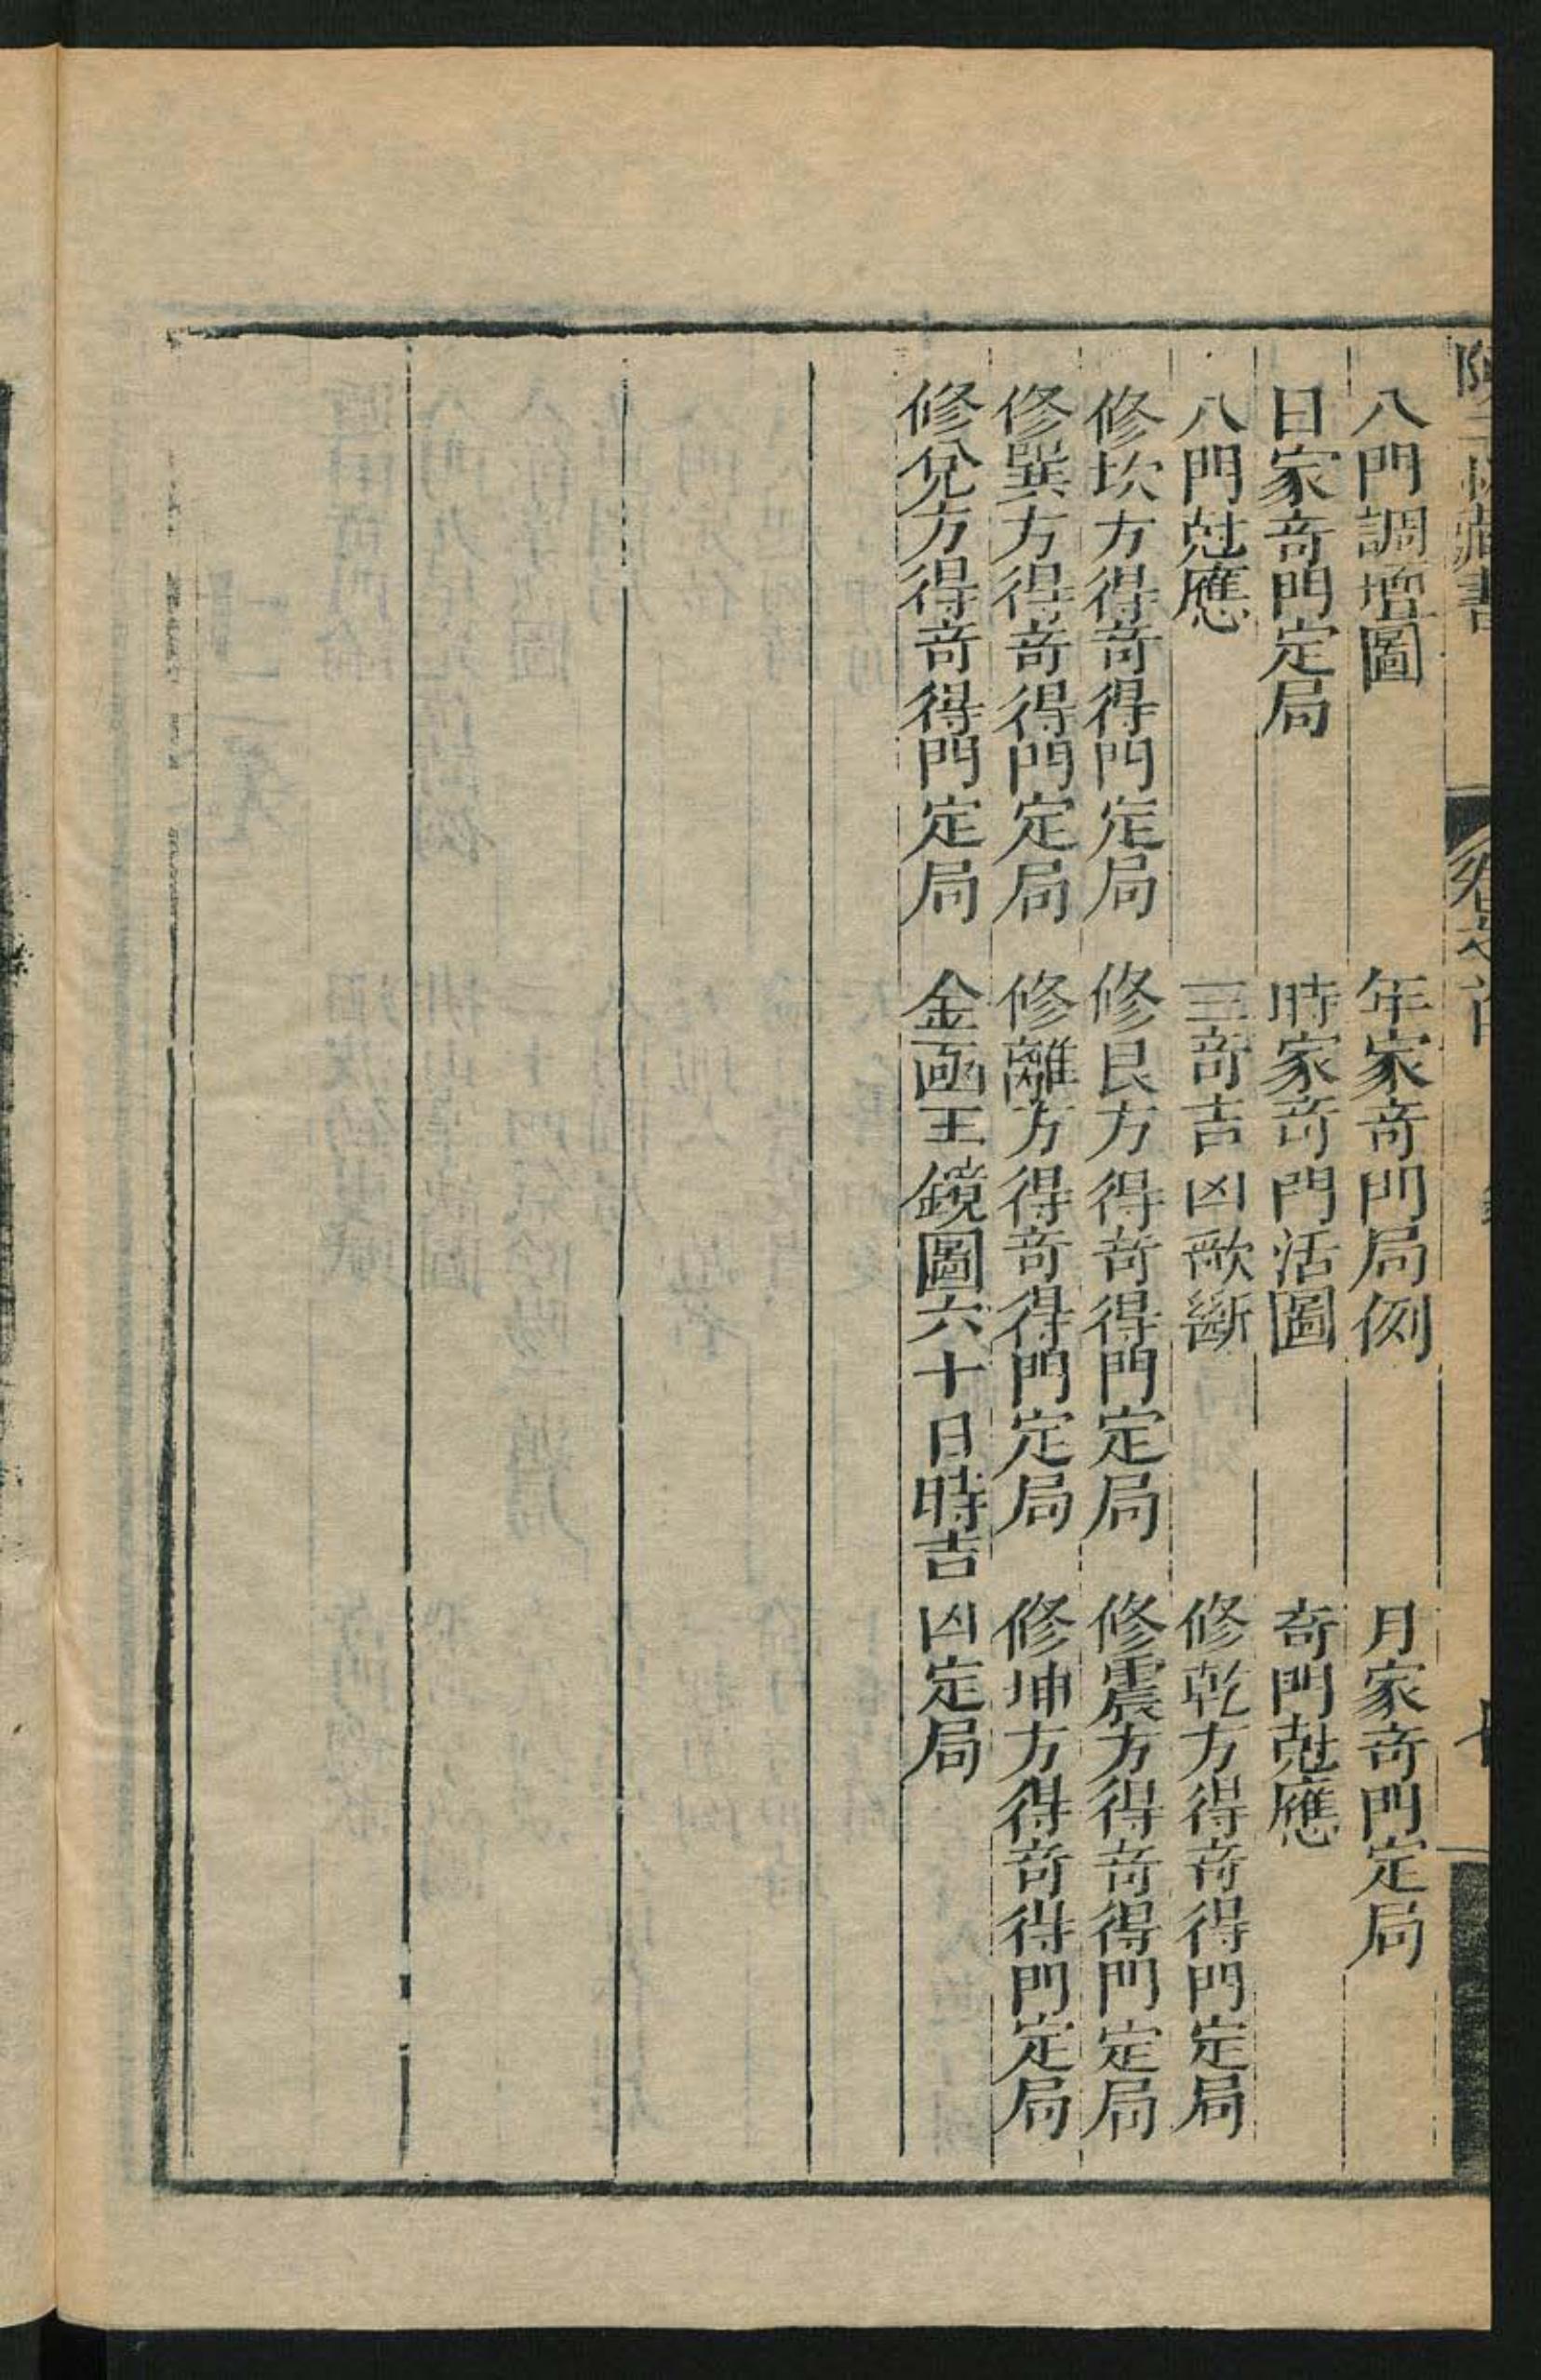 八門調壇圖　年家竒門局例　月家竒門定局
日家竒門定局　時家竒門活圖　竒門尅應
八門尅應　三竒吉凶歌斷　修乾方得竒得門定局
修坎方得竒得門定局　修艮方得竒得門定局　修震方得竒得門定局
修巽方得竒得門定局　修離方得竒得門定局　修坤方得竒得門定局
修兌方得竒得門定局　金函玉鏡圖六十日時吉凶定局